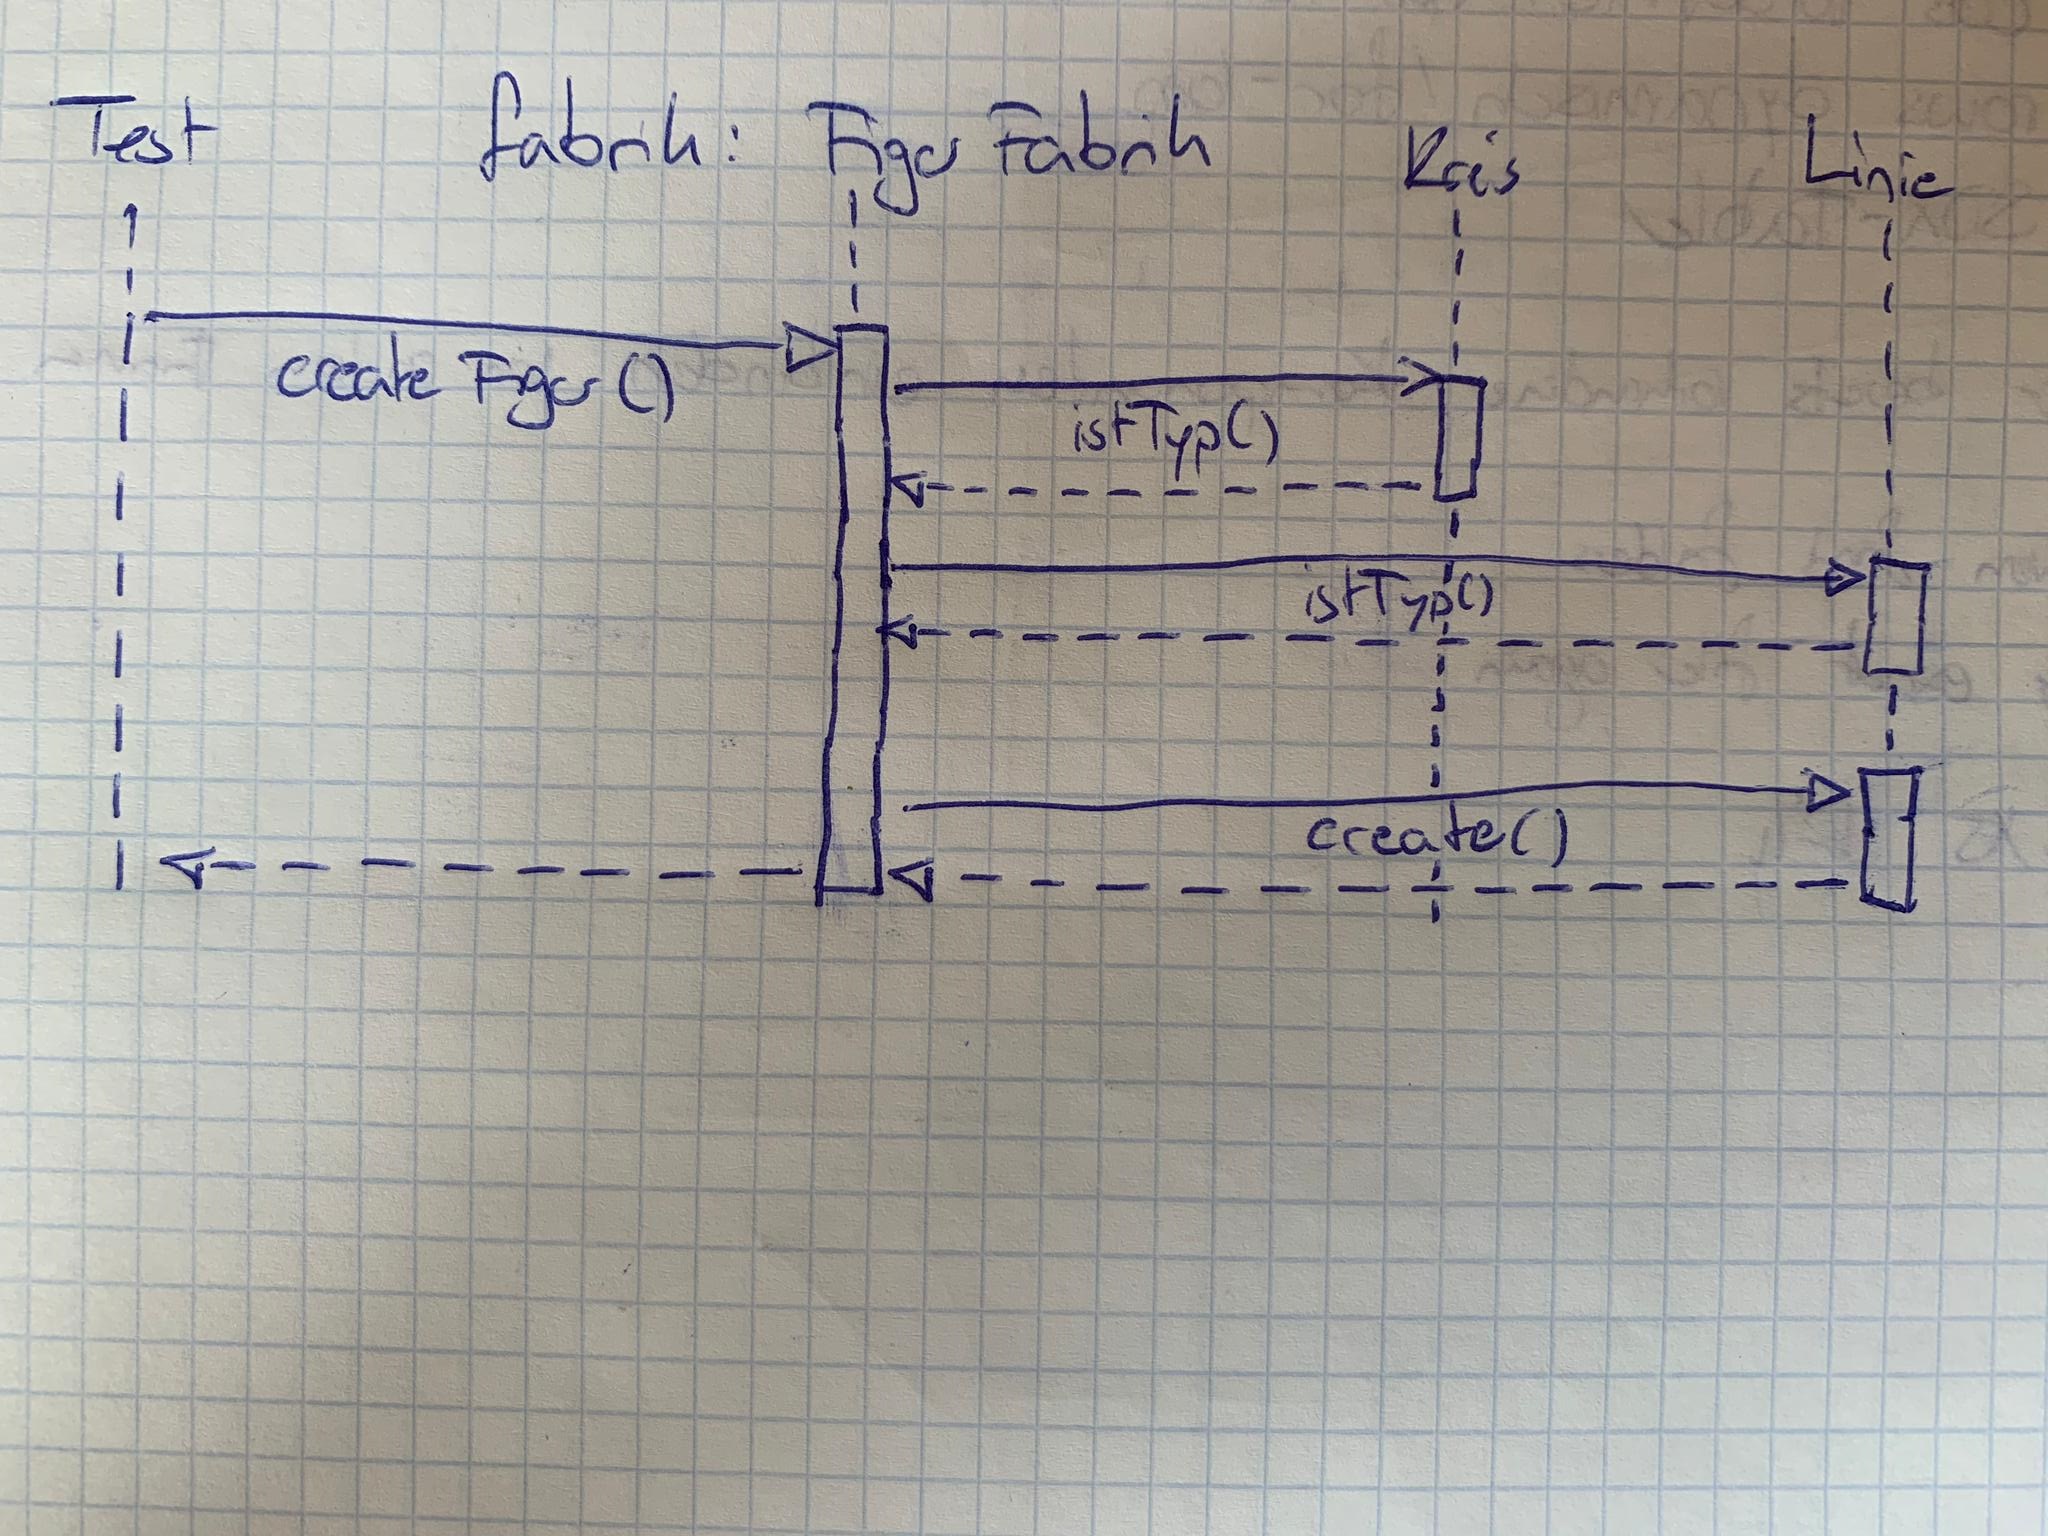 Test fabrik: Figur Fabrik Kreis Linie
create Figur ()
istTyp()
istTyp()
create()